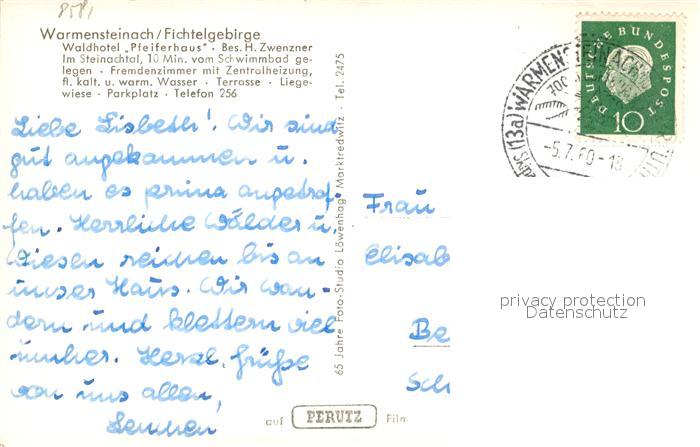 8581
Warmensteinach/Fichtelgebirge
Waldhotel „Pfeiferhaus" · Bes. H. Zwenzner
Im Steinachtal, 10 Min. vom Schwimmbad ge-
legen · Fremdenzimmer mit Zentralheizung,
fl. kalt. u. warm. Wasser · Terrasse · Liege-
wiese · Parkplatz · Telefon 256
Liebe Lisbeth! Wir sind
gut angekommen u.
haben es prima angetrof-
fen. Herrliche Wälder u.
Wiesen reichen bis an
unser Haus. Wir wan-
dern und klettern viel
umher. Herzl. Grüße
von uns allen,
Lenchen
65 Jahre Foto-Studio Löwenhag · Marktredwitz · Tel. 2475
auf PERUTZ Film
Frau
Elisab
Be
Sch
(13a) WARMENSTEINACH
700
-5.7.60-18
DEUTSCHE BUNDESPOST
10
privacy protection
Datenschutz